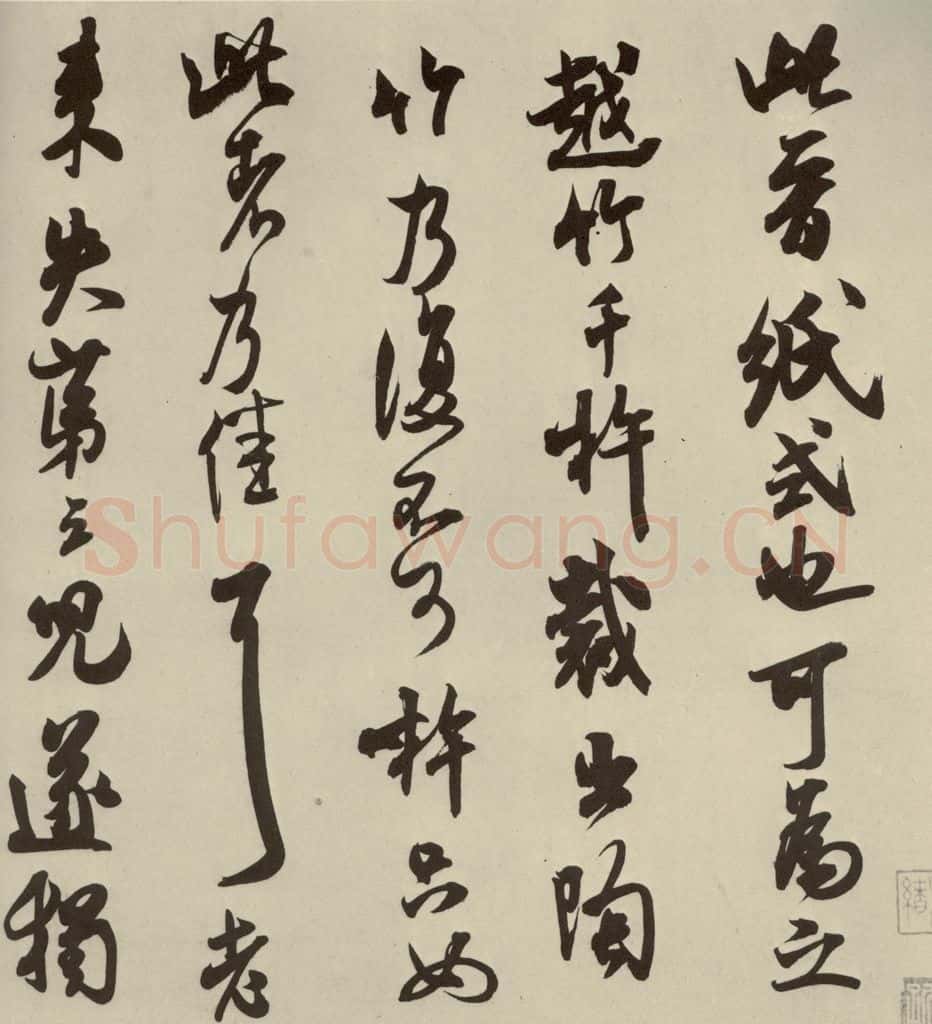 此晉紙式也可為之
越竹千杵裁出陶
竹乃復不可杵只如
此者乃佳耳老
来失第三兒遂獨
Shufawang.CN